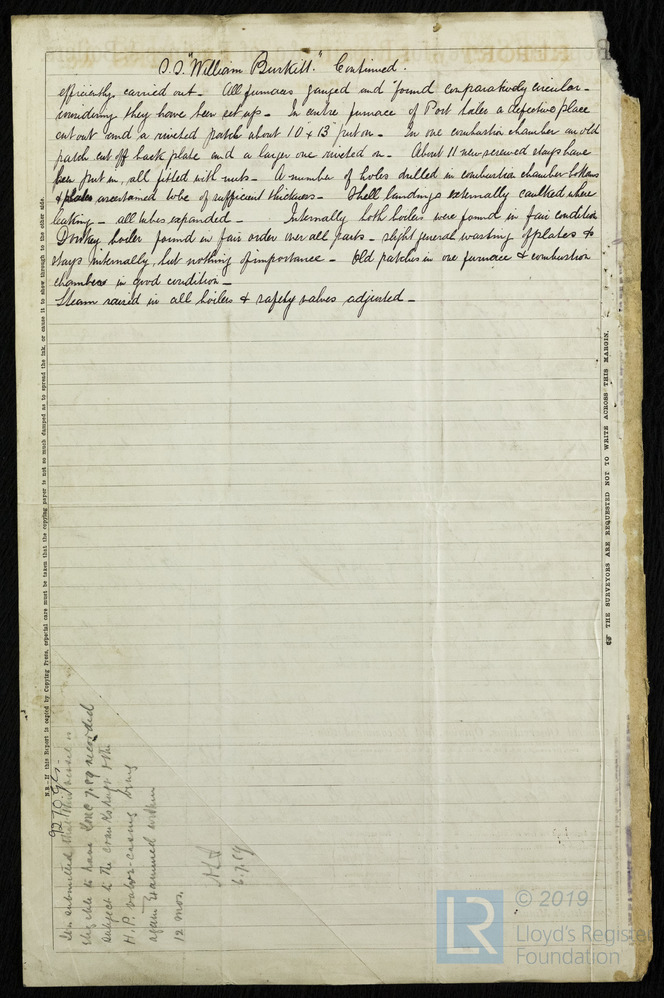 S.S. "William Burkitt." Continued.
efficiently carried out _ All furnaces gauged and found comparatively circular _
considering they have been set up _ In centre furnace of Port boiler a defective place
cut out and a riveted patch about 10 x 13 put on _ In one combustion chamber an old
patch cut off back plate and a larger one riveted on _ About 11 new screwed stays have
been put in, all fitted with nuts _ A number of holes drilled in combustion chamber bottoms
& plates ascertained to be of sufficient thickness _ Shell landings externally caulked where
leaking _ all tubes expanded _ Internally both boilers were found in fair condition
Donkey boiler found in fair order over all parts _ slight general wasting of plates &
stays internally, but nothing of importance _ Old patches in one furnace & combustion
chambers in good condition _
Steam raised in all boilers & safety valves adjusted _
N.B.—If this Report is copied by Copying Press, especial care must be taken that the copying paper is not so much damped as to spread the ink, or cause it to show through to the other side.
THE SURVEYORS ARE REQUESTED NOT TO WRITE ACROSS THIS MARGIN.
submitted that this vessel is
eligible to have LMC 7.09 recorded
subject to the crankshaft & the
H.P. valve-casing being
again examined within
12 mos.
6.7.09
© 2019
LR
Lloyd's Register
Foundation